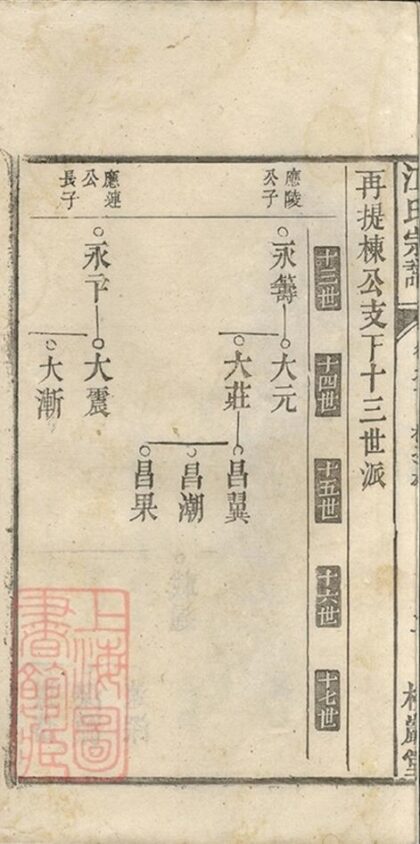 江氏宗譜
再提棟公支下十三世派
十三世
十四世
十五世
十六世
十七世
應陵
公子
永籌
大元
大莊
昌翼
昌潮
昌果
應蓮
公
長子
永下
大震
大漸
上海圖
書館藏